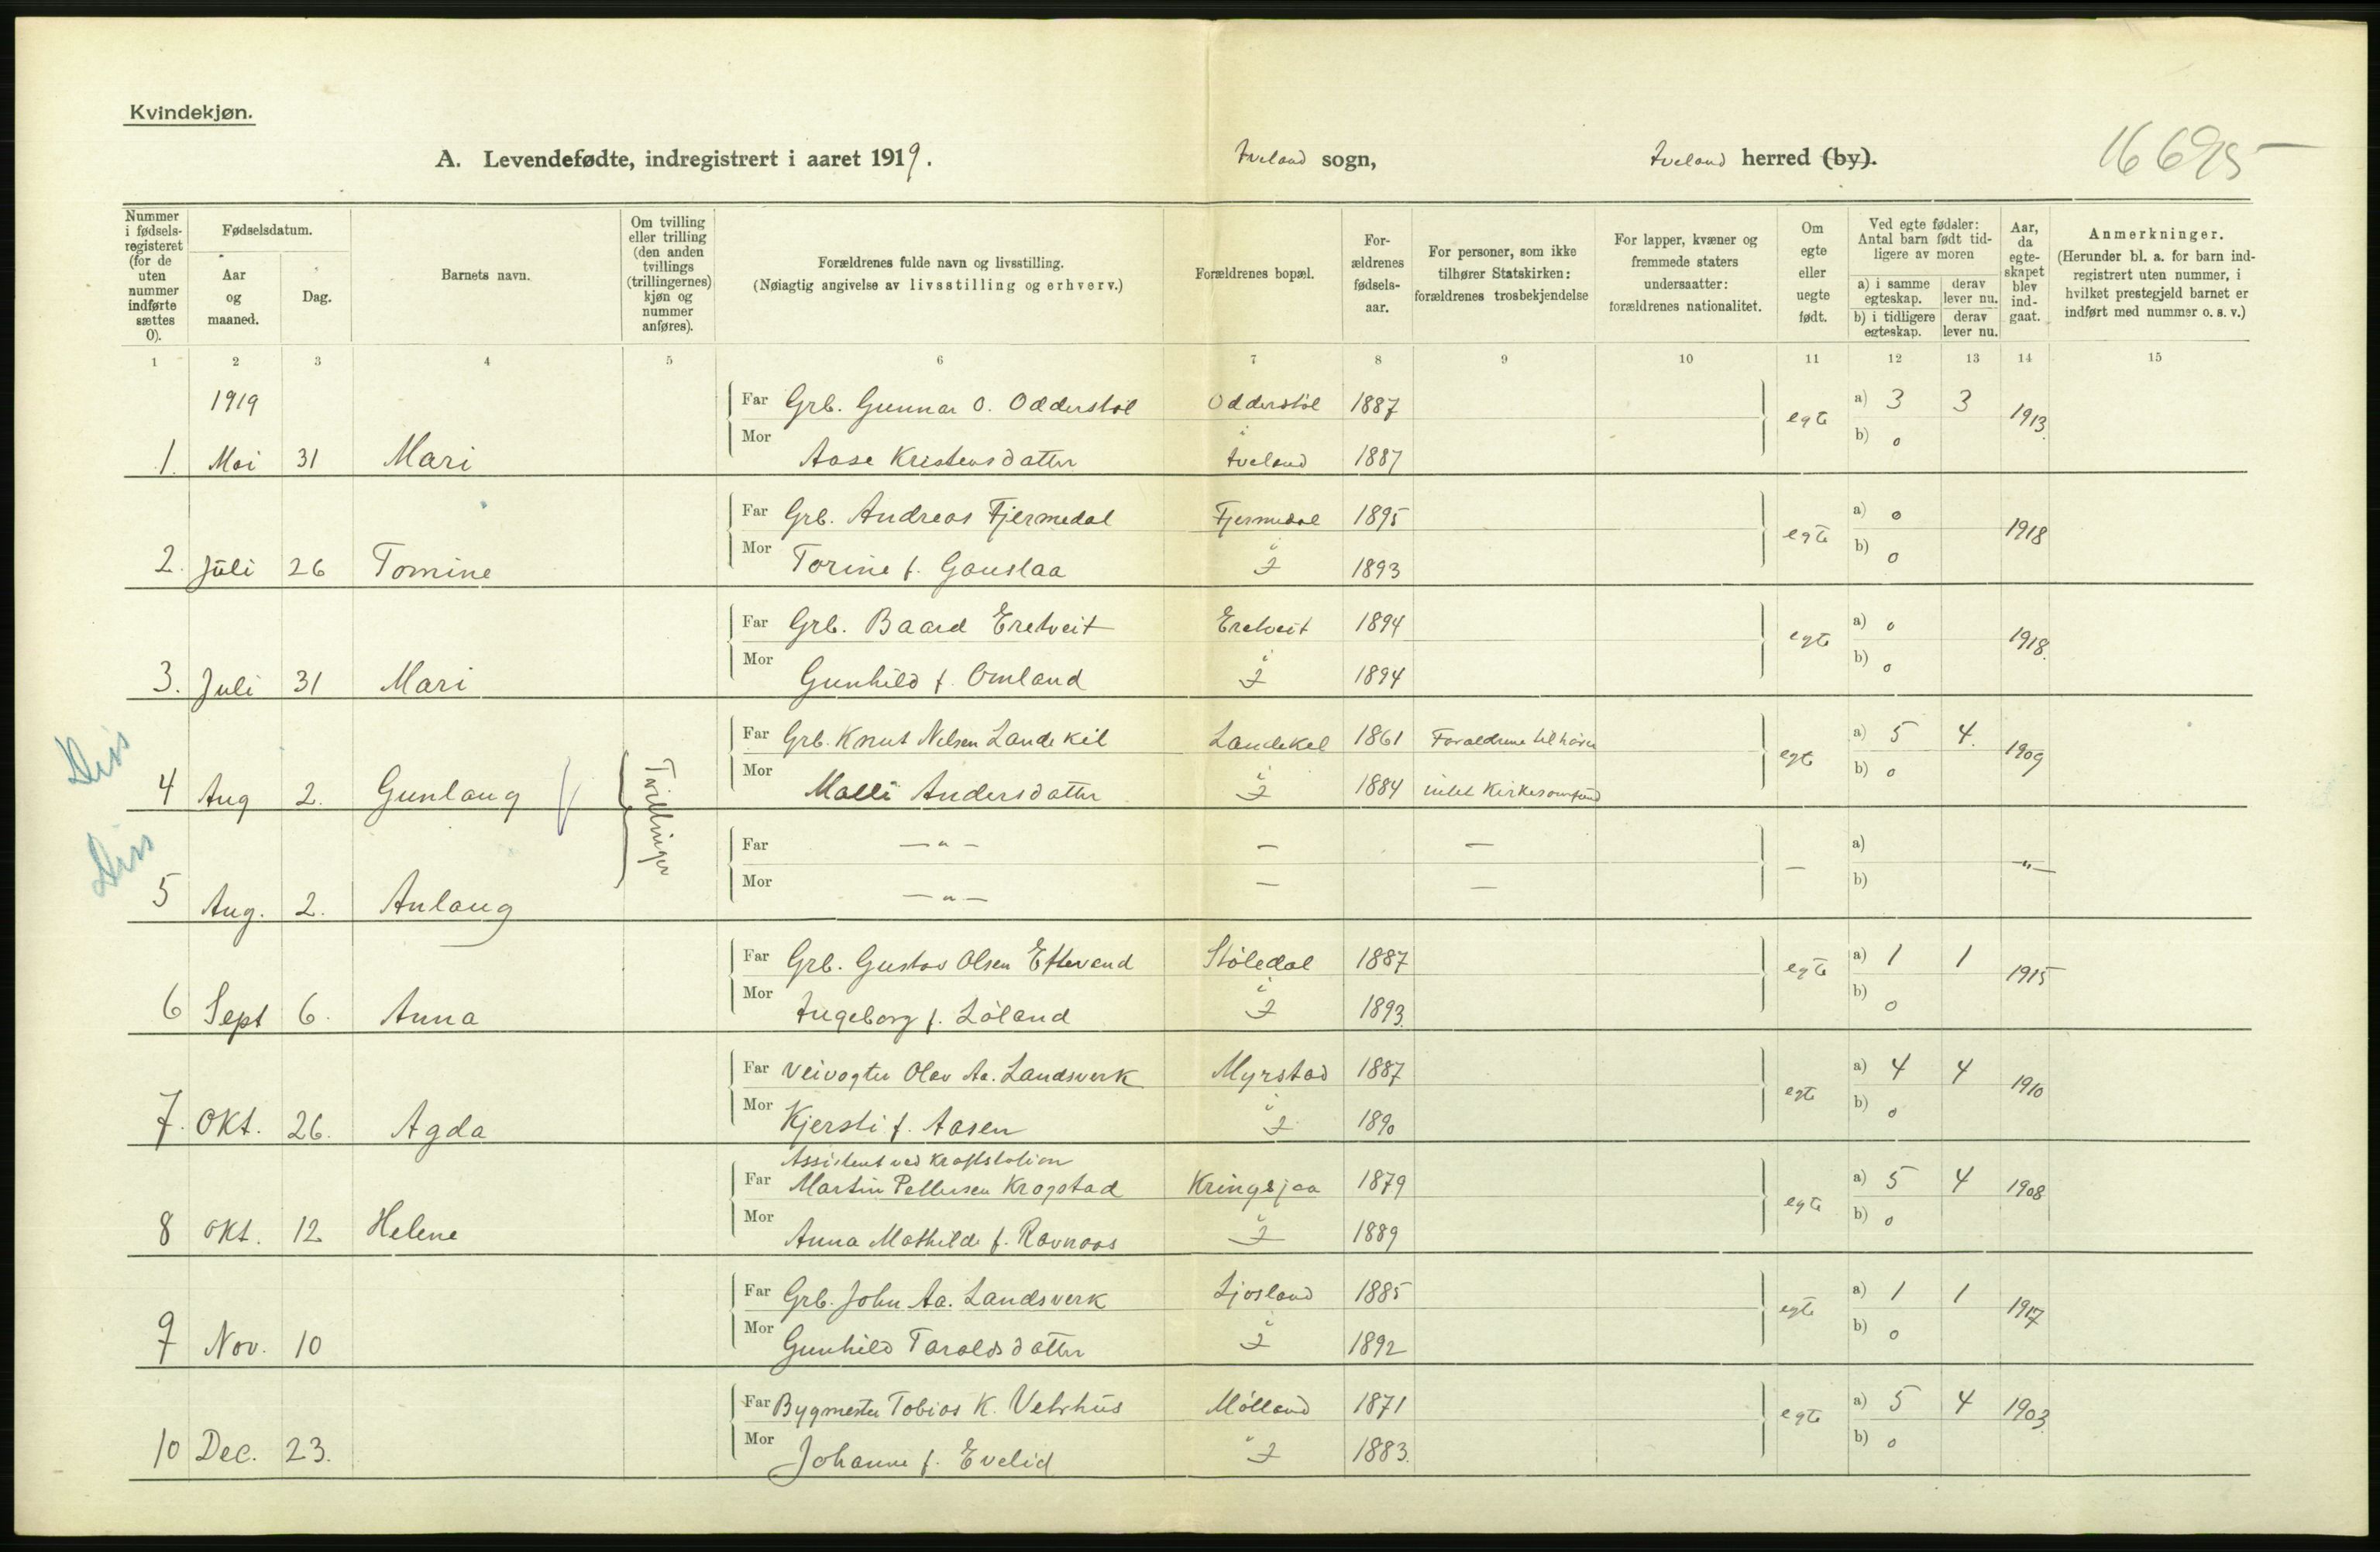 Kvindekjøn.
A. Levendefødte, indregistrert i aaret 1919. Iveland sogn, Iveland herred (by). 16695
Nummer i fødselsregisteret (for de uten nummer indførte sættes 0).
Fødselsdatum.
Aar og maaned.
Dag.
Barnets navn.
Om tvilling eller trilling (den anden tvillings (trillingernes) kjøn og nummer anføres).
Forældrenes fulde navn og livsstilling.
(Nøiagtig angivelse av livsstilling og erhverv.)
Forældrenes bopæl.
Forældrenes fødselsaar.
For personer, som ikke tilhører Statskirken: forældrenes trosbekjendelse
For lapper, kvæner og fremmede staters undersaatter: forældrenes nationalitet.
Om egte eller uegte født.
Ved egte fødsler: Antal barn født tidligere av moren
a) i samme egteskap. derav lever nu.
b) i tidligere egteskap. derav lever nu.
Aar, da egteskapet blev indgaat.
Anmerkninger.
(Herunder bl. a. for barn indregistrert uten nummer, i hvilket prestegjeld barnet er indført med nummer o. s. v.)
1 2 3 4 5 6 7 8 9 10 11 12 13 14 15
1919 Far Grb. Gunnar O. Odderstøl Odderstøl 1887 egte a) 3 3 1913.
1. Mai 31 Mari Mor Aase Kristensdatter i Iveland 1887 b) 0
Far Grb. Andreas Fjermedal Fjermedal 1895 egte a) 0 1918
2. Juli 26 Tomine Mor Torine f. Gauslaa i I 1893 b) 0
Far Grb. Baard Eretveit Eretveit 1894 egte a) 0 1918.
3. Juli 31 Mari Mor Gunhild f. Omland i I 1894 b) 0
Diss Far Grb. Knut Nelsen Landekil Landekel 1861 Forældrene tilhører egte a) 5 4. 1909
4 Aug 2. Gunlaug Tvillinger Mor Malli Andersdatter i I 1884 intet Kirkesamfund b) 0
Diss Far — " — — — — a) — " —
5 Aug. 2. Anlaug Mor — " — — — b)
Far Grb. Gustav Olsen Eftevand Støledal 1887 egte a) 1 1 1915
6 Sept 6. Anna Mor Ingeborg f. Løland i I 1893. b) 0
Far Veivogter Olav Aa. Landsverk Myrstad 1887 egte a) 4 4 1910
7. Okt. 26. Agda Mor Kjersti f. Aasen i I 1890 b) 0
Assistent ved Kraftstation
Far Martin Pettersen Krogstad Kringsjaa 1879 egte a) 5 4 1908
8 Okt. 12 Helene Mor Anna Mathilde f. Ravnaas i I 1889 b) 0
Far Grb. John Aa. Landsverk Ljosland 1885 egte a) 1 1 1917
9 Nov. 10 Mor Gunhild Taraldsdatter i I 1892 b) 0
Far Bygmester Tobias K. Vehrhus Mølland 1871 egte a) 5 4 1903.
10 Dec. 23. Mor Johanne f. Evelid i I 1883. b) 0